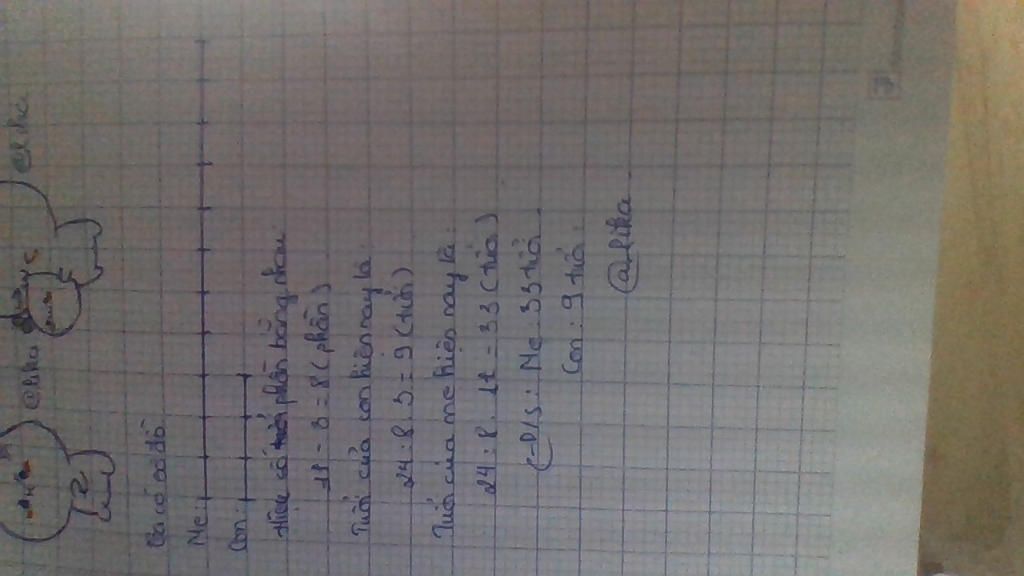 @lika
@lika
Ta có sơ đồ
Mẹ:
Con:
Hiệu có số phần bằng nhau:
11 - 3 = 8 (phần)
Tuổi của con hiện nay là:
24 : 8 . 3 = 9 (tuổi)
Tuổi của mẹ hiện nay là:
24 : 8 . 11 = 33 (tuổi)
Đ/S: Mẹ: 33 tuổi
Con: 9 tuổi
@lika